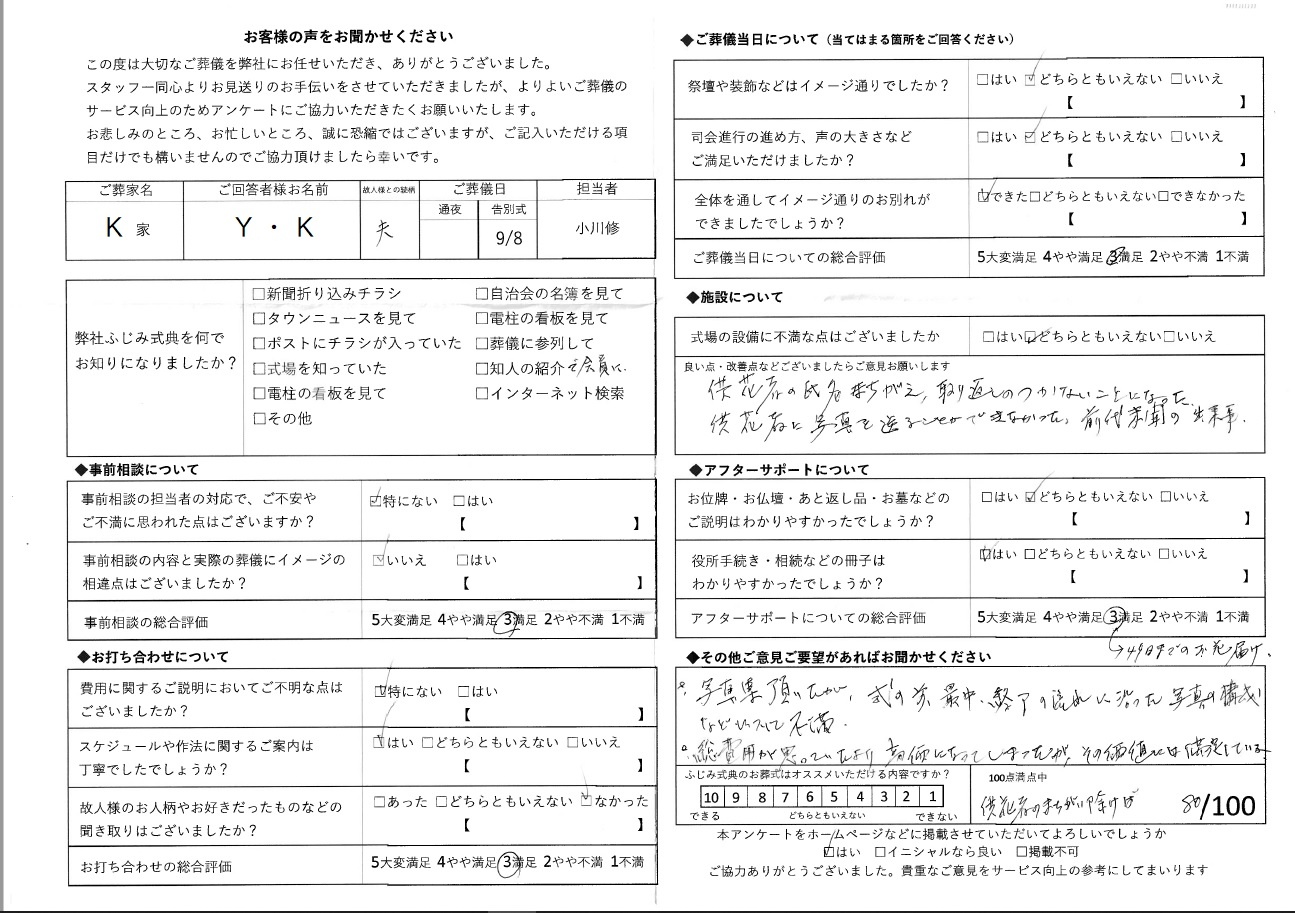 お客様の声をお聞かせください
この度は大切なご葬儀を弊社にお任せいただき、ありがとうございました。
スタッフ一同心よりお見送りのお手伝いをさせていただきましたが、よりよいご葬儀の
サービス向上のためアンケートにご協力いただきたくお願いいたします。
お悲しみのところ、お忙しいところ、誠に恐縮ではございますが、ご記入いただける項
目だけでも構いませんのでご協力頂けましたら幸いです。
ご葬家名 ご回答者様お名前 故人様との続柄 ご葬儀日 担当者
通夜 告別式
K 家 Y・K 夫 9/8 小川修
弊社ふじみ式典を何で
お知りになりましたか？
□新聞折り込みチラシ □自治会の名簿を見て
□タウンニュースを見て □電柱の看板を見て
□ポストにチラシが入っていた □葬儀に参列して
□式場を知っていた □知人の紹介で会員に
□電柱の看板を見て □インターネット検索
□その他
◆事前相談について
事前相談の担当者の対応で、ご不安や
ご不満に思われた点はございますか？
☑特にない □はい
【 】
事前相談の内容と実際の葬儀にイメージの
相違点はございましたか？
☑いいえ □はい
【 】
事前相談の総合評価 5大変満足 4やや満足 3満足 2やや不満 1不満
◆お打ち合わせについて
費用に関するご説明においてご不明な点は
ございましたか？
☑特にない □はい
【 】
スケジュールや作法に関するご案内は
丁寧でしたでしょうか？
☑はい □どちらともいえない □いいえ
【 】
故人様のお人柄やお好きだったものなどの
聞き取りはございましたか？
□あった □どちらともいえない ☑なかった
【 】
お打ち合わせの総合評価 5大変満足 4やや満足 3満足 2やや不満 1不満
◆ご葬儀当日について（当てはまる箇所をご回答ください）
祭壇や装飾などはイメージ通りでしたか？
□はい ☑どちらともいえない □いいえ
【 】
司会進行の進め方、声の大きさなど
ご満足いただけましたか？
□はい ☑どちらともいえない □いいえ
【 】
全体を通してイメージ通りのお別れが
できましたでしょうか？
☑できた□どちらともいえない□できなかった
【 】
ご葬儀当日についての総合評価 5大変満足 4やや満足 3満足 2やや不満 1不満
◆施設について
式場の設備に不満な点はございましたか □はい☑どちらともいえない□いいえ
良い点・改善点などございましたらご意見お願いします
供花者の氏名まちがえ、取り返しのつかないことになった
供花者に写真を送ることができなかった。前代未聞の出来事.
◆アフターサポートについて
お位牌・お仏壇・あと返し品・お墓などの
ご説明はわかりやすかったでしょうか？
□はい ☑どちらともいえない □いいえ
【 】
役所手続き・相続などの冊子は
わかりやすかったでしょうか？
☑はい □どちらともいえない □いいえ
【 】
アフターサポートについての総合評価 5大変満足 4やや満足 3満足 2やや不満 1不満
→49日までのお花届け.
◆その他ご意見ご要望があればお聞かせください
写真集頂いたが、式の前、最中、終了の流れに沿った写真の構成
などについて不満.
総費用が思っていたより高価になってしまったが、その価値には満足している
ふじみ式典のお葬式はオススメいただける内容ですか？
10 9 8 7 6 5 4 3 2 1
できる どちらともいえない できない
100点満点中
供花者のまちがい除けば 80/100
本アンケートをホームページなどに掲載させていただいてよろしいでしょうか
☑はい □イニシャルなら良い □掲載不可
ご協力ありがとうございました。貴重なご意見をサービス向上の参考にしてまいります